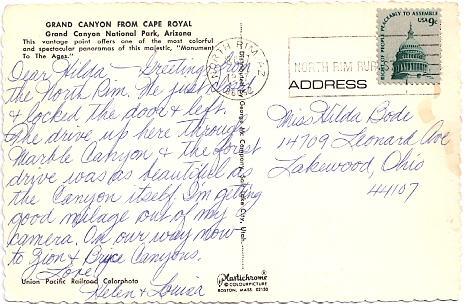 GRAND CANYON FROM CAPE ROYAL
Grand Canyon National Park, Arizona
This vantage point offers one of the most colorful
and spectacular panoramas of this majestic, "Monument
To The Ages."
Dear Hilda — Greetings from
the North Rim. We just
& locked the door & left.
The drive up here through
Marble Canyon & the forest
drive was as beautiful as
the Canyon itself. I'm getting
good milage out of my
camera. On our way now
to Zion & Bryce Canyons.
Love!
Helen & Louisa
Union Pacific Railroad Colorphoto
Plastichrome
© COLOURPICTURE
BOSTON, MASS. 02130
NORTH RIM, AZ
NORTH RIM RUR
RIGHT OF PEOPLE PEACEABLY TO ASSEMBLE
USA 9c
ADDRESS
Miss Hilda Bode
14709 Leonard Ave
Lakewood, Ohio
44107